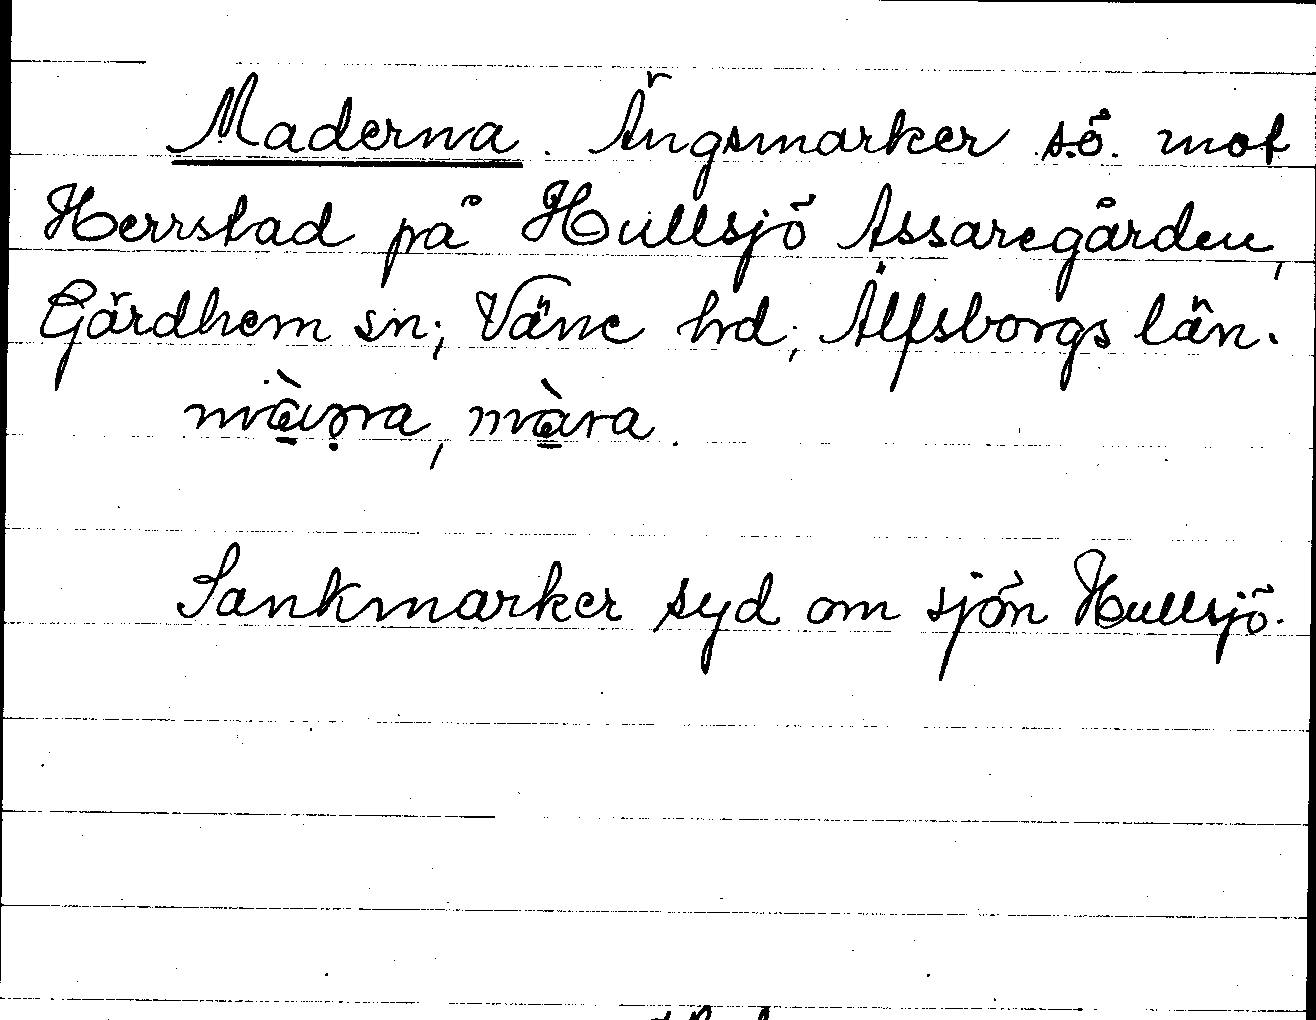 Maderna. Ängsmarker s.ö. mot
Herrstad på Hullsjö Assaregården,
Gärdhem sn; Väne hd; Älfsborgs län.
màra.
Sankmarker syd om sjön Hullsjö.